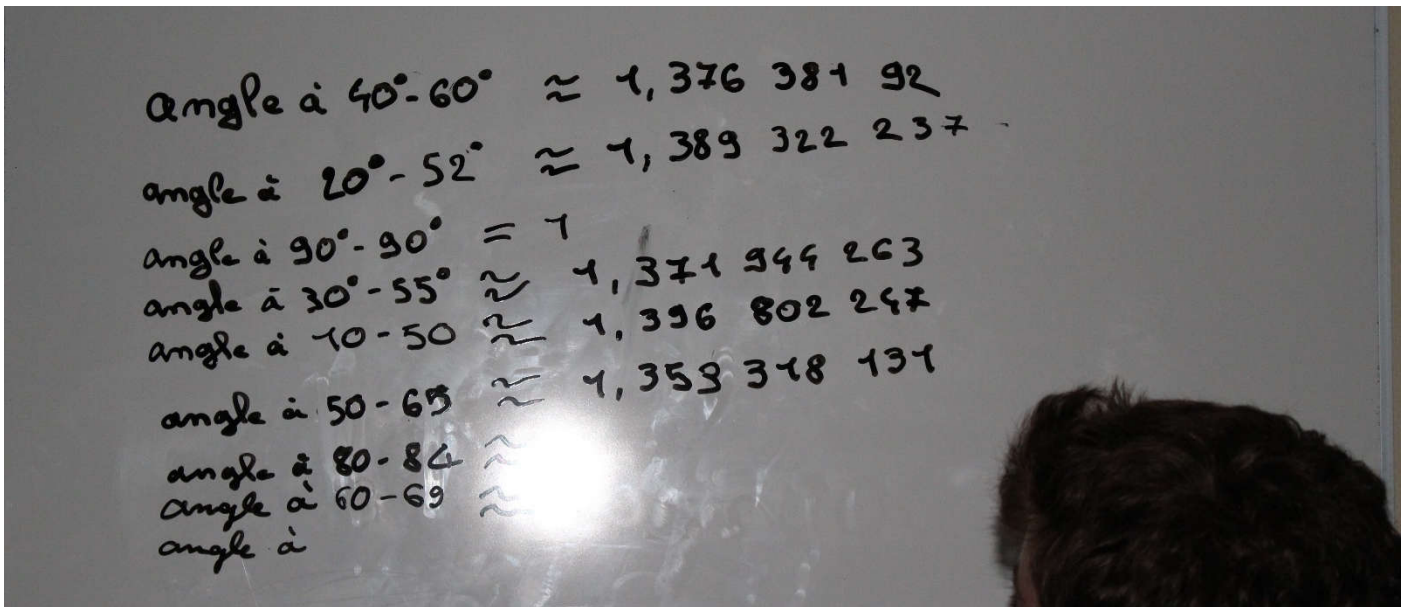 angle à 40°-60° ≈ 1,376 381 92
angle à 20°-52° ≈ 1,389 322 237
angle à 90°-90° = 1
angle à 30°-55° ≈ 1,371 944 263
angle à 10-50 ≈ 1,396 802 247
angle à 50-65 ≈ 1,353 318 131
angle à 80-84 ≈
angle à 60-69 ≈
angle à